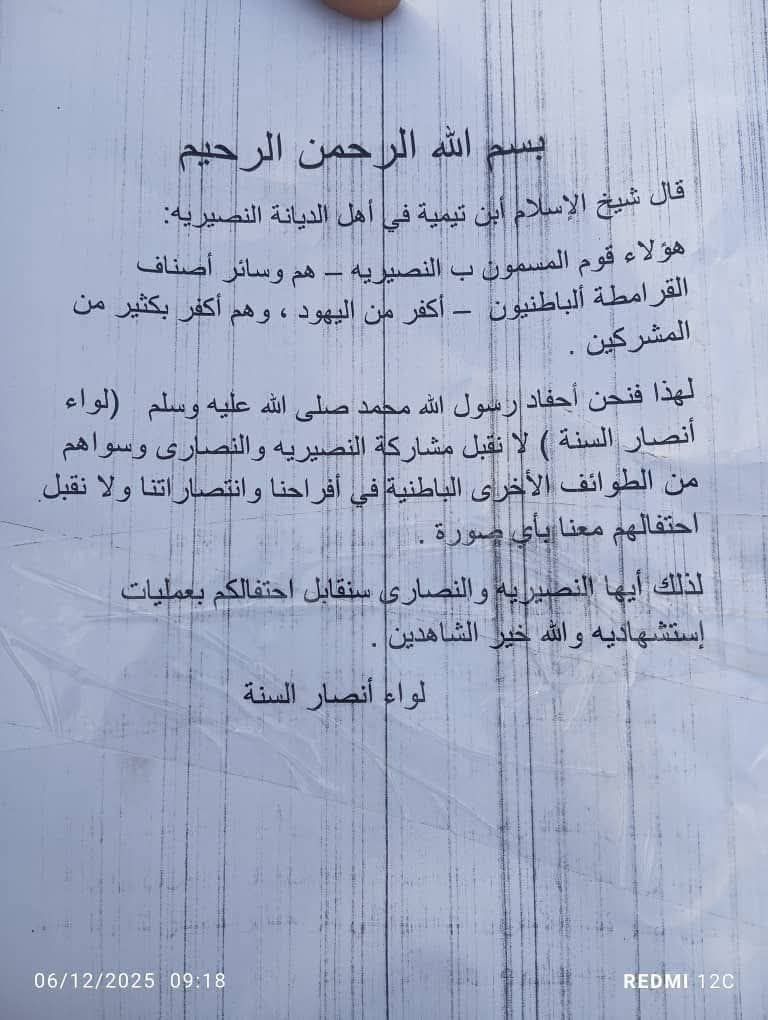 بسم الله الرحمن الرحيم
قال شيخ الإسلام أبن تيمية في أهل الديانة النصيريه:
هؤلاء قوم المسمون ب النصيريه – هم وسائر أصناف
القرامطة ألباطنيون – أكفر من اليهود ، وهم أكفر بكثير من
المشركين .
لهذا فنحن أحفاد رسول الله محمد صلى الله عليه وسلم (لواء
أنصار السنة ) لا نقبل مشاركة النصيريه والنصارى وسواهم
من الطوائف الأخرى الباطنية في أفراحنا وانتصاراتنا ولا نقبل
احتفالهم معنا بأي صورة .
لذلك أيها النصيريه والنصارى سنقابل احتفالكم بعمليات
إستشهاديه والله خير الشاهدين .
لواء أنصار السنة
06/12/2025 09:18
REDMI 12C